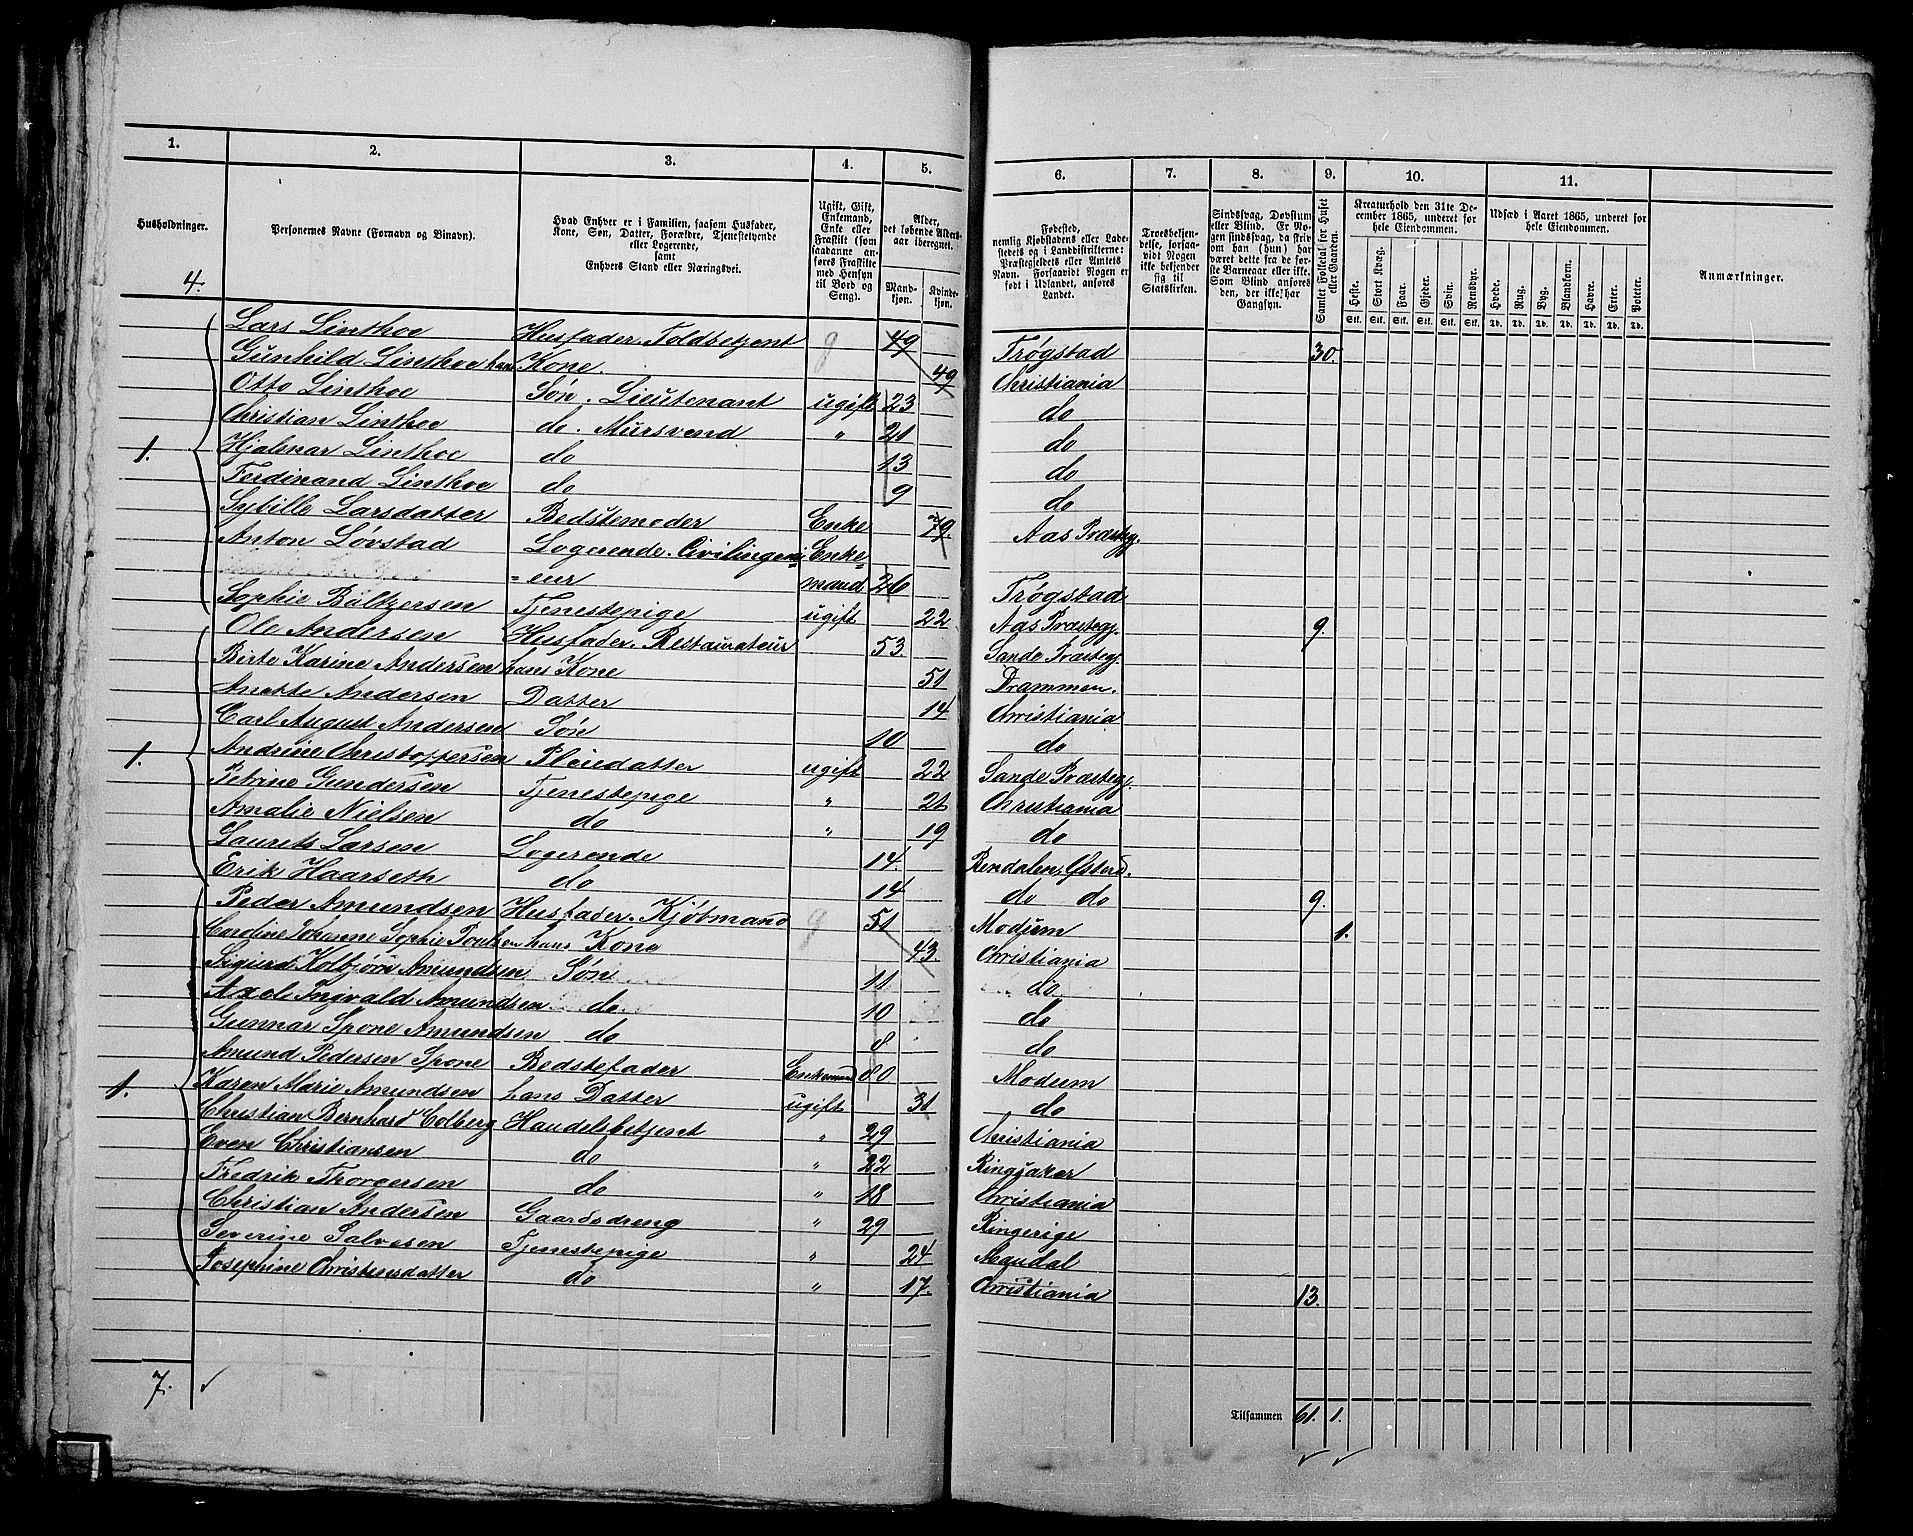 1.
2.
3.
4.
5.
Husholdninger.
Personernes Navne (Fornavn og Binavn).
Hvad Enhver er i Familien, saasom Husfader,
Kone, Søn, Datter, Forældre, Tjenestetyende
eller Logerende,
samt
Enhvers Stand eller Næringsvei.
Ugift, Gift,
Enkemand,
Enke eller
Fraskilt (som
saadanne an-
føres Fraskilte
med Hensyn
til Bord og
Seng).
Alder,
det løbende Alders-
aar iberegnet.
Mand-
kjøn.
Kvinde-
kjøn.
4.
Lars Linthoe Husfader. Toldbetjent g 49
Gunhild Linthoe hans Kone. 49
Otto Linthoe Søn. Lieutenant ugift 23
Christian Linthoe do. Mursvend " 21
1. Hjalmar Linthoe do 13
Ferdinand Linthoe do 9
Sybille Larsdatter Bedstemoder Enke 79.
Anton Løvstad Logerende. Civilingeni Enke=
=eur mand 26
Sophie Baltzersen Tjenestepige ugift 22
Ole Andersen Husfader. Restaurateur 53.
Birte Karine Andersen hans Kone 51
Anette Andersen Datter 14
Carl August Andersen Søn 10
1. Andrine Christoffersen Pleiedatter ugift 22
Petrine Gundersen Tjenestepige " 21
Amalie Nielsen do " 19
Laurits Larsen Logerende 14.
Erik Haarseth do 14
Peder Amundsen Husfader. Kjøbmand g 51
Caroline Johanne Sophie Poulsen hans Kone 43
Sigurd Kolbjørn Amundsen Søn 11
Axel Ingvald Amundsen do. 10
Gunnar Spone Amundsen do 8
Amund Pedersen Spone Bedstefader Enkemand 80
1. Karen Marie Amundsen hans Datter ugift 31
Christian Bernhard Colberg Handelsbetjent " 29
Even Christiansen do " 22
Fredrik Thorgersen do " 18
Christian Andersen Gaardsdreng " 29
Severine Salvesen Tjenestepige " 24
Josephine Christensdatter do " 17.
7.
6.
7.
8.
9.
10.
11.
Fødested,
nemlig Kjøbstadens eller Lade-
stedets og i Landdistrikterne:
Præstegjeldets eller Amtets
Navn. Forsaavidt Nogen er
født i Udlandet, anføres
Landet.
Troesbekjen-
delse, forsaa-
vidt Nogen
ikke bekjender
sig til
Statskirken.
Sindssvag, Døvstum
eller Blind. Er No-
gen sindssvag, da skriv
om han (hun) har
været dette fra de før-
ste Barneaar eller ikke.
Som Blind anføres
den, der ikke har
Gangsyn.
Samlet Folketal for Huset
eller Gaarden.
Kreaturhold den 31te De-
cember 1865, underet for
hele Eiendommen.
Heste.
Stort Kvæg.
Faar.
Gjeder.
Svin.
Rensdyr.
Stk. Stk. Stk. Stk. Stk. Stk.
Udsæd i Aaret 1865, underet for
hele Eiendommen.
Hvede.
Rug.
Byg.
Blandkorn.
Havre.
Erter.
Poteter.
Td. Td. Td. Td. Td. Td. Td.
Anmærkninger.
Trøgstad 30.
Christiania
do
do
do
do
Aas Præsteg.
Trøgstad
Aas Præstegj. 9.
Sande Præstegj.
Drammen.
Christiania
do
Sande Præstegj.
Christiania
do
Rendalen, Østerd.
do do 9.
Modum 1.
Christiania
do
do
do
Modum
do
Christiania
Ringsaker
Christiania
Ringerige
Mandal
Christiania 13.
Tilsammen 61. 1.